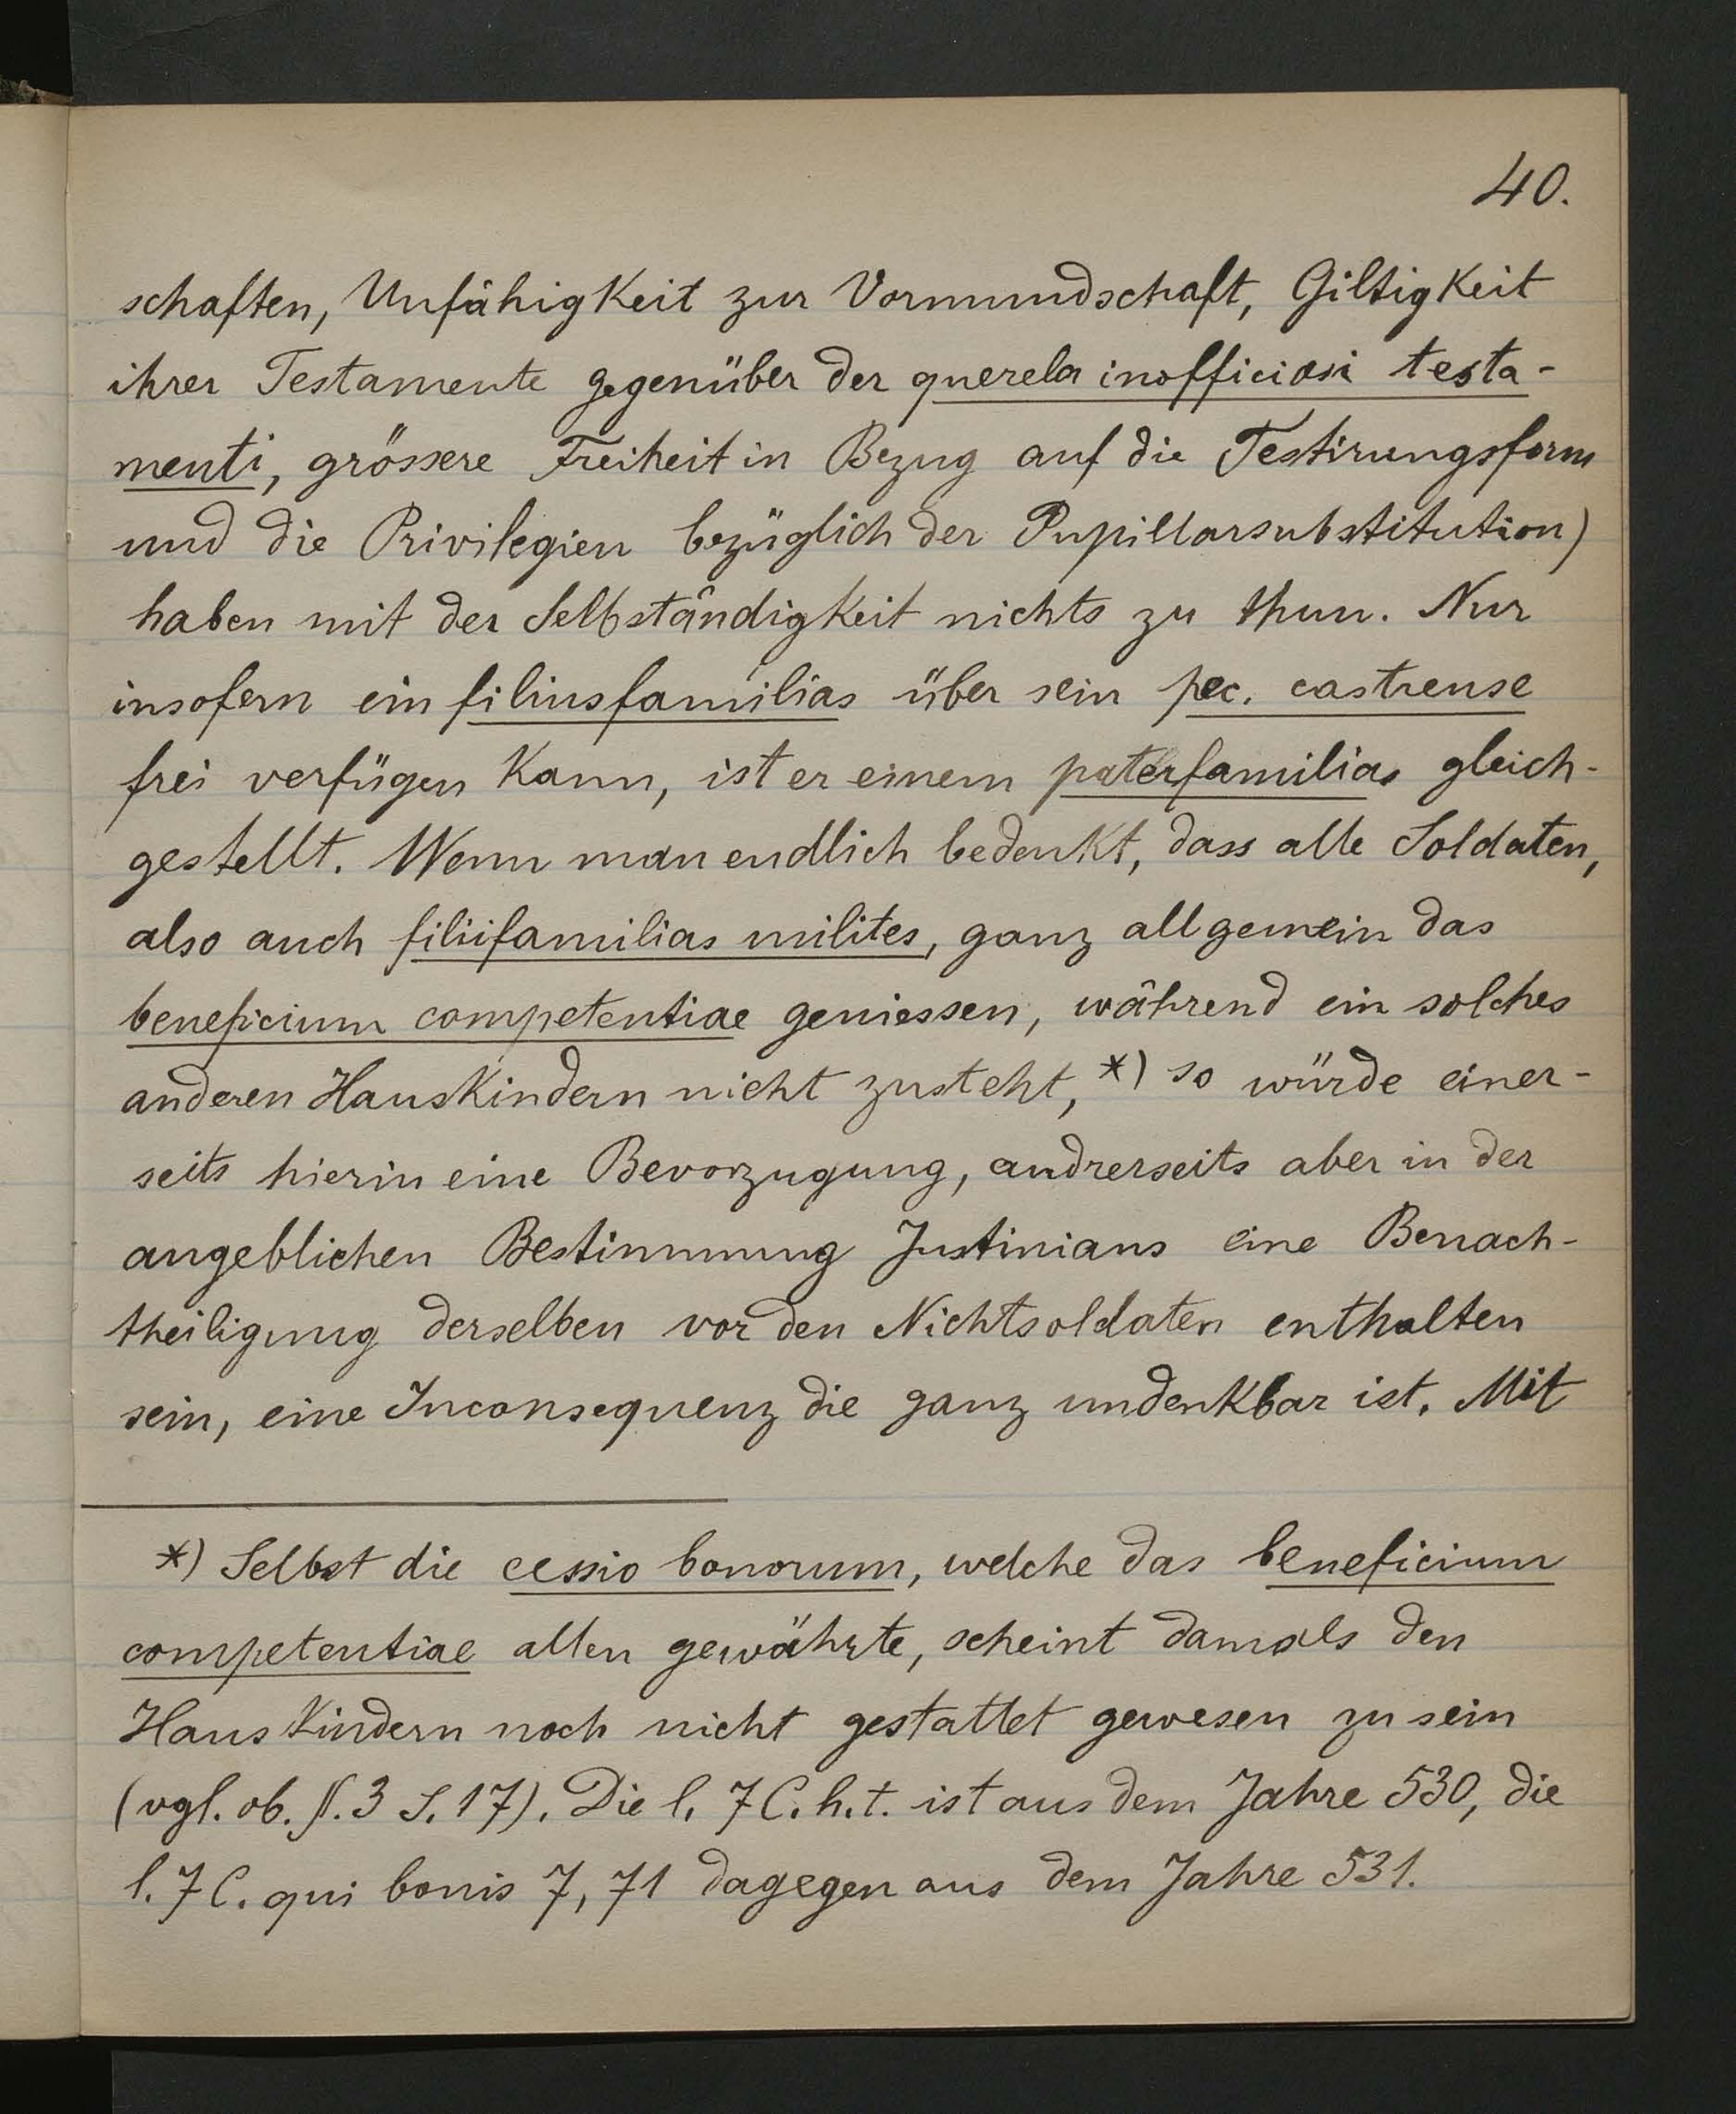 40.
schaften, Unfähigkeit zur Vormundschaft, Giltigkeit
ihrer Testamente gegenüber der querela inofficiosi testa-
menti, grössere Freiheit in Bezug auf die Testirungsform
und die Privilegien bezüglich der Pupillarsubstitution)
haben mit der Selbständigkeit nichts zu thun. Nur
insofern ein filiusfamilias über sein pec. castrense
frei verfügen kann, ist er einem paterfamilias gleich-
gestellt. Wenn man endlich bedenkt, dass alle Soldaten,
also auch filiifamilias milites, ganz allgemein das
beneficium competentiae geniessen, während ein solches
anderen Hauskindern nicht zusteht, *) so würde einer-
seits hierin eine Bevorzugung, andrerseits aber in der
angeblichen Bestimmung Justinians eine Benach-
theiligung derselben vor den Nichtsoldaten enthalten
sein, eine Inconsequenz die ganz undenkbar ist. Mit
*) Selbst die cessio bonorum, welche das beneficium
competentiae allen gewährte, scheint damals den
Hauskindern noch nicht gestattet gewesen zu sein
(vgl. ob. §. 3 S. 17). Die l. 7 C. h. t. ist aus dem Jahre 530, die
l. 7 C. qui bonis 7, 71 dagegen aus dem Jahre 531.